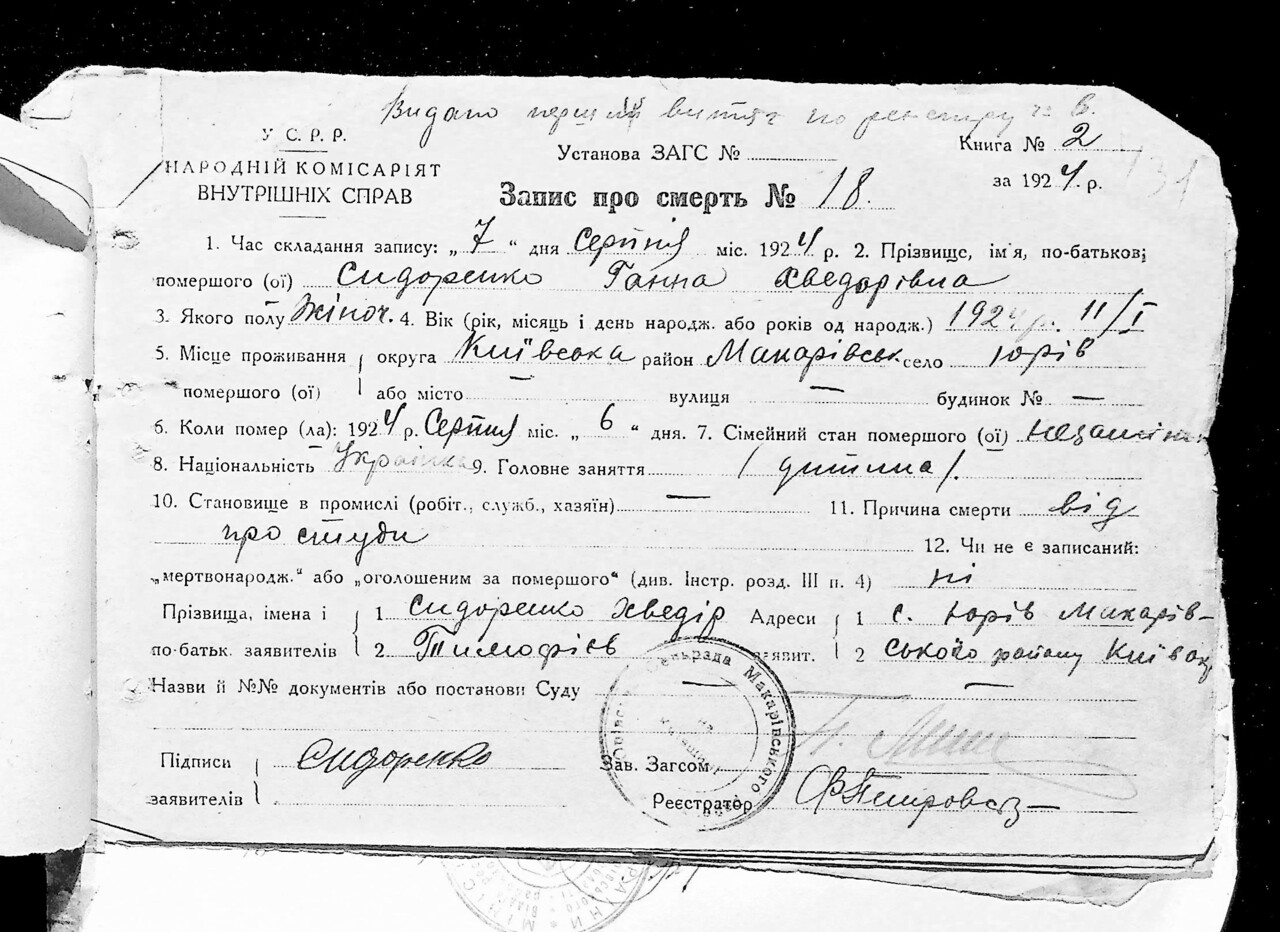 Видано перший витяг по реєстру
У С. Р. Р.
НАРОДНІЙ КОМІСАРІЯТ
ВНУТРІШНІХ СПРАВ
Установа ЗАГС №
Книга № 2
за 1924 р.
Запис про смерть № 18.
1. Час складання запису: „ 7 “ дня Серпня міс. 1924 р. 2. Прізвище, ім'я, по-батькові
помершого (ої) Сидоренко Ганна Хведорівна
3. Якого полу жіноч. 4. Вік (рік, місяць і день народж. або років од народж.) 1924 р. 11/I
5. Місце проживання округа Київська район Макарівськ село Юрів
помершого (ої) або місто — вулиця — будинок № —
6. Коли помер (ла): 1924 р. Серпня міс. „ 6 “ дня. 7. Сімейний стан помершого (ої)
8. Національність Українка 9. Головне заняття (дитина).
10. Становище в промислі (робіт., служб., хазяїн) — 11. Причина смерти від
простуди 12. Чи не є записаний:
„мертвонародж.“ або „оголошеним за помершого“ (див. Інстр. розд. III п. 4) ні
Прізвища, імена і 1 Сидоренко Хведір Адреси 1 с. Юрів Макарів-
по-батьк. заявителів 2. Тимофієв заявит. 2 ського району Київ окр
Назви й №№ документів або постанови Суду — —
Підписи Сидоренко Зав. Загсом
заявителів Реєстратор
сільрада Макарівського